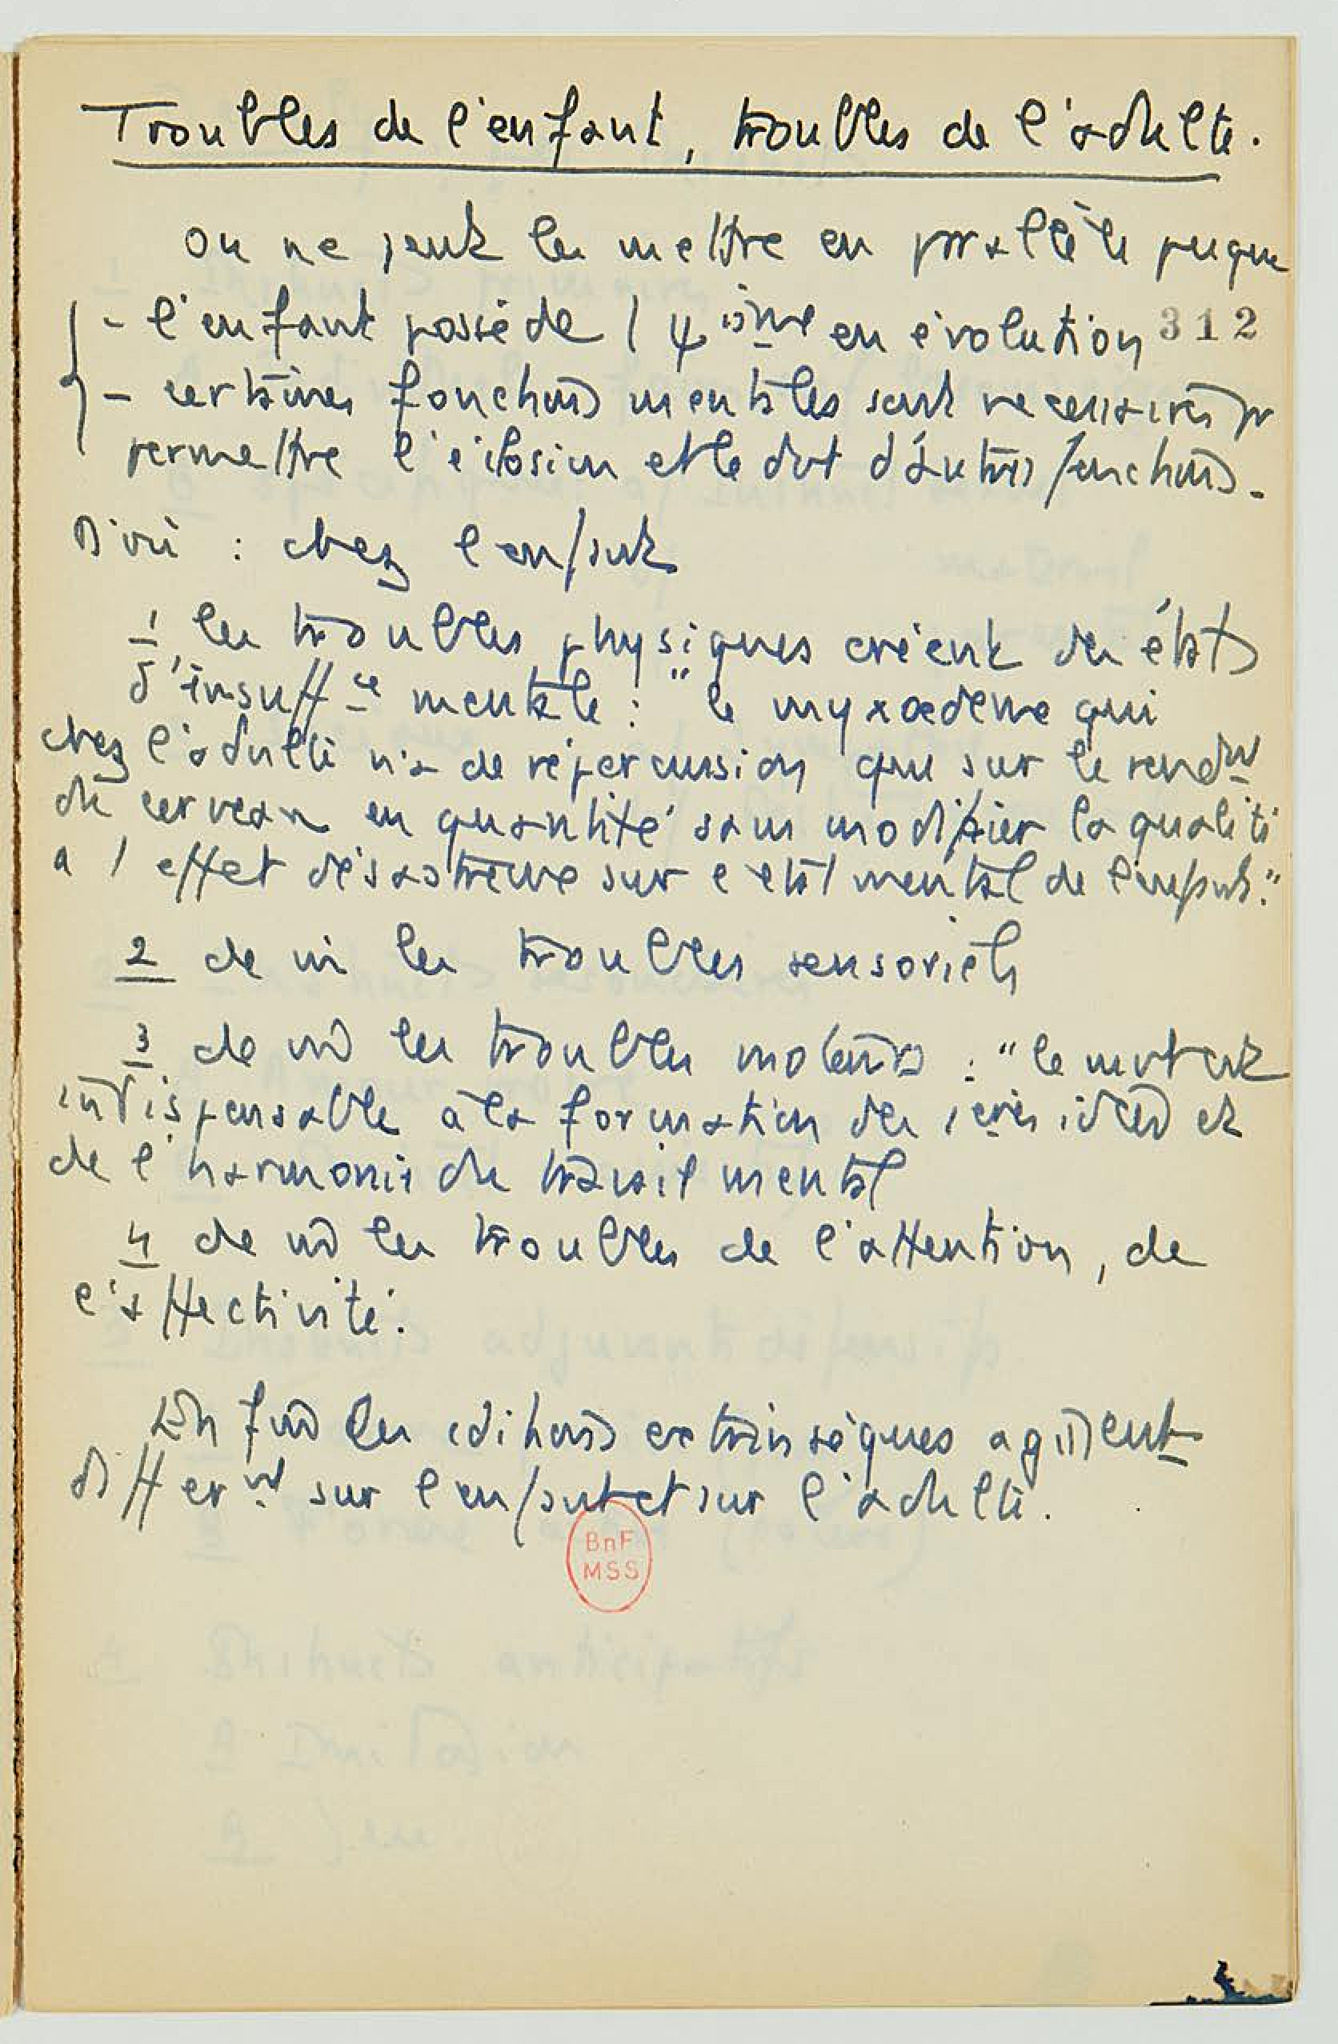 Troubles de l'enfant, troubles de l'adulte.
On ne peut les mettre en parallèle puisque
- l'enfant possède 1 ψisme en évolution 312
- certaines fonctions mentales sont necessaires pr
permettre l'éclosion et le dvt d'autres fonctions.
D'où : chez l'enfant
1, les troubles physiques créent des états
d'insuffce mentale : "le myxoedème qui
chez l'adulte n'a de répercussion que sur le rendmt
du cerveau en quantité sans modifier la qualité
a 1 effet désastreux sur l'état mental de l'enfant."
2 de m les troubles sensoriels
3 de m les troubles moteurs : "le mvt est
indispensable à la formation des 1ères idées et
de l'harmonie du travail mental
4 de m les troubles de l'attention, de
l'affectivité.
Enfin les cditions extrinsèques agissent
differmt sur l'enfant et sur l'adulte.
BnF
MSS